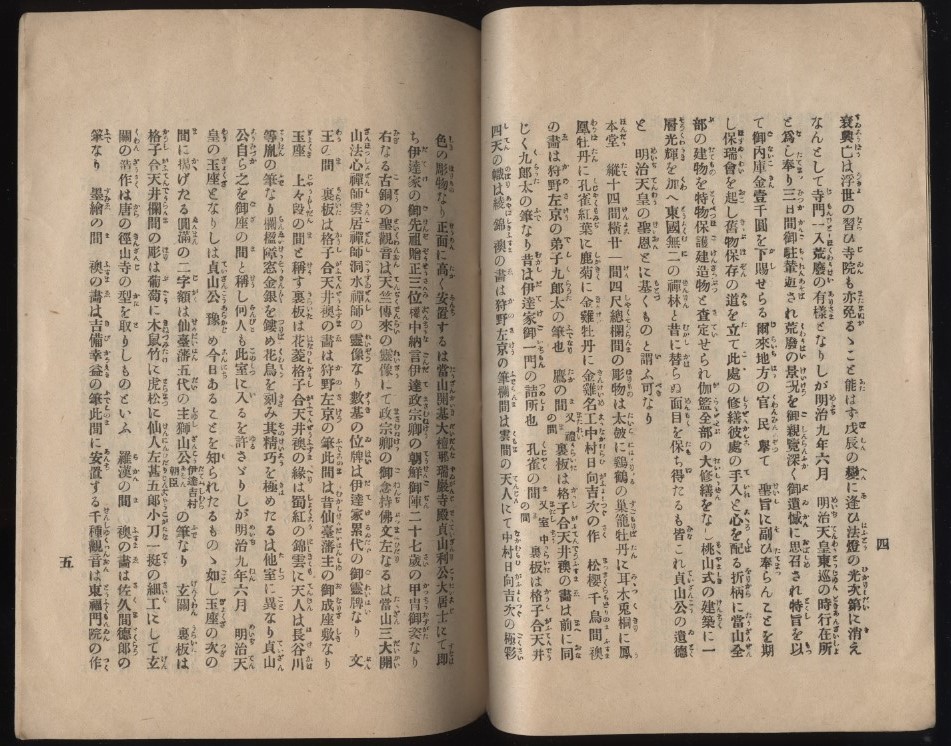 四
衰興亡は浮世の習ひ寺院も亦免るゝこと能はす戊辰の變に逢ひ法燈の光次第に消え
なんとして寺門一入荒廢の有樣となりしが明治九年六月 明治天皇東巡の時行在所
と爲し奉り三日間御駐輦遊され荒廢の景況を御親覽深く御遺憾に思召され特旨を以
て御內庫金壹千圓を下賜せらる爾來地方の官民擧て 聖旨に副ひ奉らんことを期
し保瑞會を起し舊物保存の道を立て此處の修繕彼處の手入と心を配る折柄に當山全
部の建物を特物保護建造物と査定せられ伽籃全部の大修繕をなし桃山式の建築に一
層光輝を加へ東國無二の禪林と昔に替らぬ面目を保ち得たるも皆これ貞山公の遺德
と 明治天皇の聖恩とに基くものと謂ふ可なり
本堂 縱十四間橫廿一間四尺總欄間の彫物は太皷に鷄鶴の巢籠牡丹に耳木兎桐に鳳
凰牡丹に孔雀紅葉に鹿菊に金雞牡丹に金雞名工中村日向吉次の作 松櫻千鳥間 襖
の畫は狩野左京の弟子九郎太の筆也 鷹の間 又禮の間 裏板は格子合天井襖の畫は前に同
じく九郎太の筆なり昔は伊達家御一門の詰所也 孔雀の間 又室中の間 裏板は格子合天井
四天の幟は綾錦 襖の畫は狩野左京の筆欄間は雲間の天人にて中村日向吉次の極彩
色の彫物なり正面に高く安置するは當山開基大檀那瑞巖寺殿貞山利公大居士にて卽
ち伊達家の御先祖贈正三位權中納言伊達政宗卿の朝鮮御陣二十七歲の甲冑御姿なり
右なる古銅の聖觀音は天竺傳來の靈像にて政宗卿の御念持佛文左なるは當山三大開
山法心禪師雲居禪師洞水禪師の靈像なり數基の位牌は伊達家累代の御靈牌なり 文
王の間 裏板は格子合天井襖の畫は狩野左京の筆此間は昔仙臺藩主の御成座敷なり
玉座 上々段の間と稱す裏板は花菱格子合天井襖の緣は蜀紅の錦雲に天人は長谷川
等胤の筆なり欄檻障窓金銀を鏤め花鳥を刻み其精巧を極めたるは他室に異なり貞山
公自ら之を御座の間と稱し何人も此室に入るを許さゞりしが明治九年六月 明治天
皇の玉座となりしは貞山公 豫め今日あることを知られたるものゝ如し玉座の次の
間に揚げたる圓滿の二字額は仙臺藩五代の主獅山公伊達吉村朝臣の筆なり 玄關 裏板は
格子合天井欄間の彫は葡萄に木鼠竹に虎松に仙人左甚五郎小刀一挺の細工にして玄
關の造作は唐の徑山寺の型を取りしものといふ 羅漢の間 襖の畫は佐久間德郎の
筆なり 墨繪の間 襖の畫は吉備幸益の筆此間に安置する千種觀音は東福門院の作
五